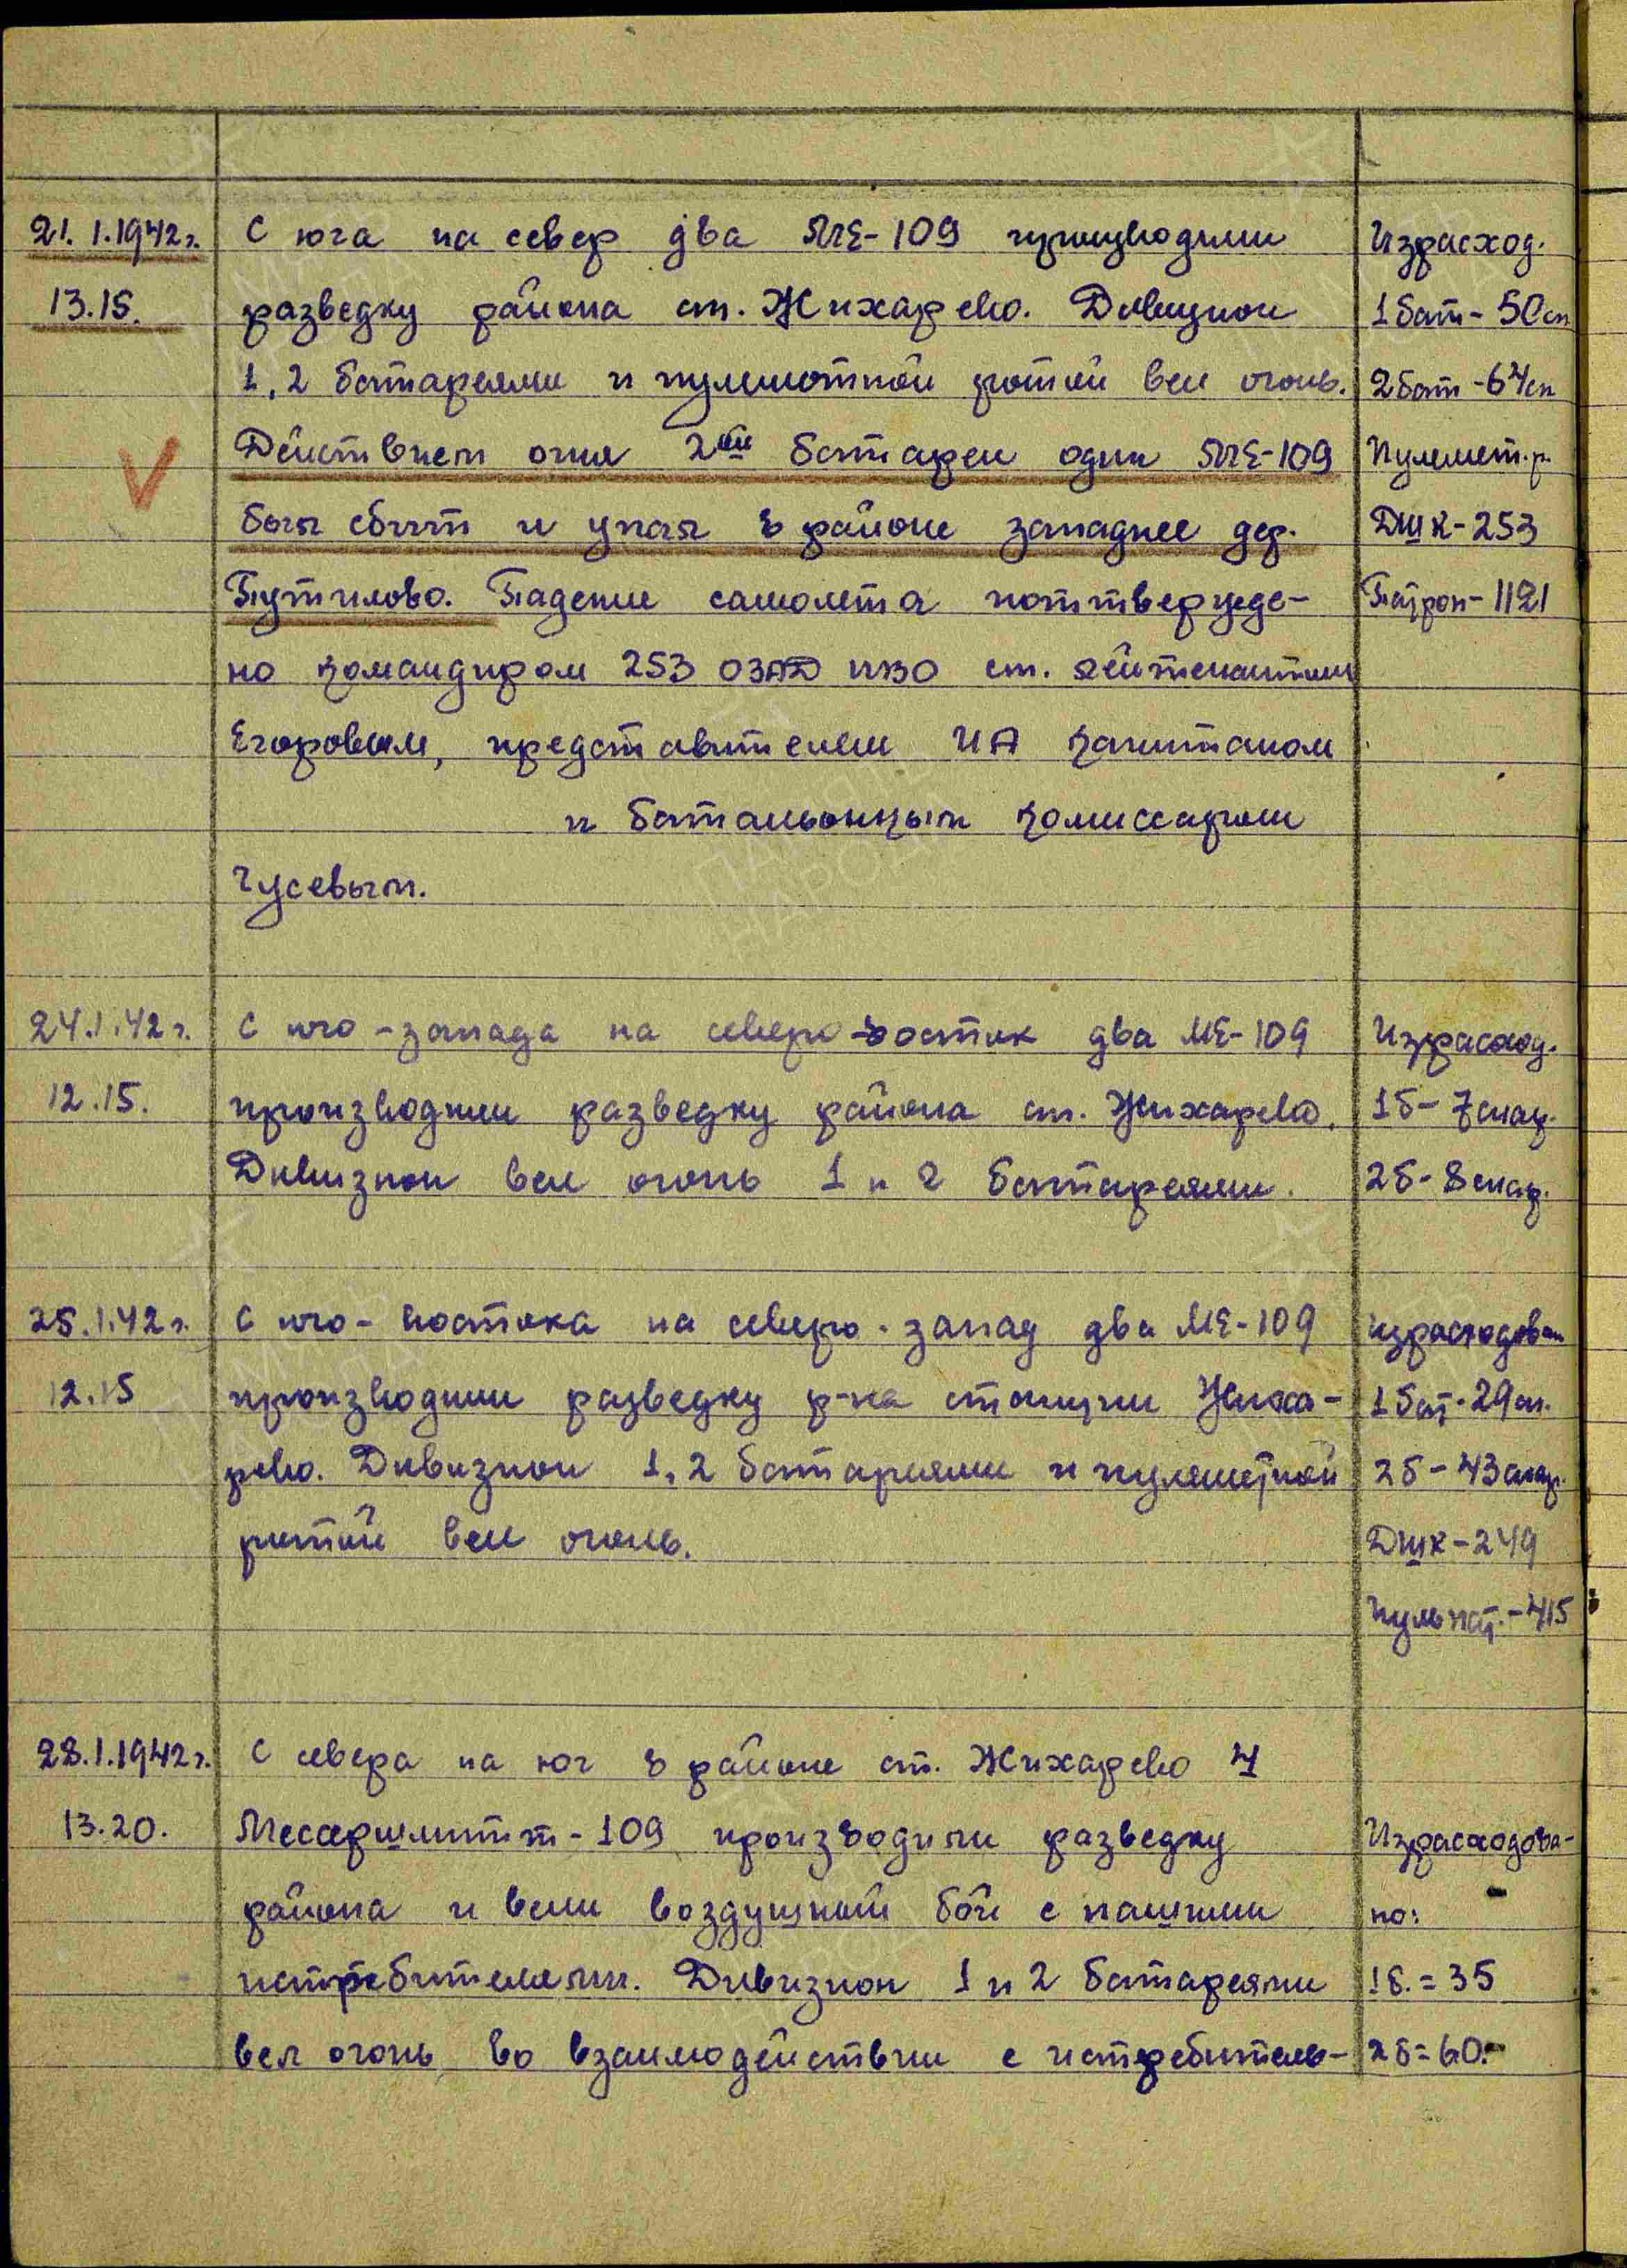 21.1.1942г. С юга на север два МЕ-109 производили Израсход.
13.15. разведку района ст. Жихарево. Дивизион 1 бат - 50 сн
1, 2 батареями и пулеметной ротой вел огонь. 2 бат - 64 сн
Действием огня 2ой батареи один МЕ-109 Пулемет.р.
был сбит и упал в районе западнее дер. ДШК - 253
Путилово. Падение самолета поттвержде- Патрон - 1121
но командиром 253 ОЗАД ПВО ст. лейтенантом
Егоровым, представителем ИА капитаном
и батальонным комиссаром
Гусевым.
24.1.42г. С юго-запада на северо-восток два МЕ-109 Израсход.
12.15. производили разведку района ст. Жихарево. 1б - 7 снар.
Дивизион вел огонь 1 и 2 батареями. 2б - 8 снар.
25.1.42г. С юго-востока на северо-запад два МЕ-109 Израсходован
12.15 производили разведку р-на станции Жиха- 1 бат - 29 сн.
рево. Дивизион 1, 2 батареями и пулеметной 2б - 43 снар.
ротой вел огонь. ДШК - 249
Пуль пат. - 415
28.1.1942г. С севера на юг в районе ст. Жихарево 4
13.20. Мессершмитт-109 производили разведку Израсходова-
района и вели воздушный бой с нашими но:
истребителями. Дивизион 1 и 2 батареями 1б. = 35
вел огонь во взаимодействии с истребитель- 2б = 60.
ПАМЯТЬ
НАРОДА